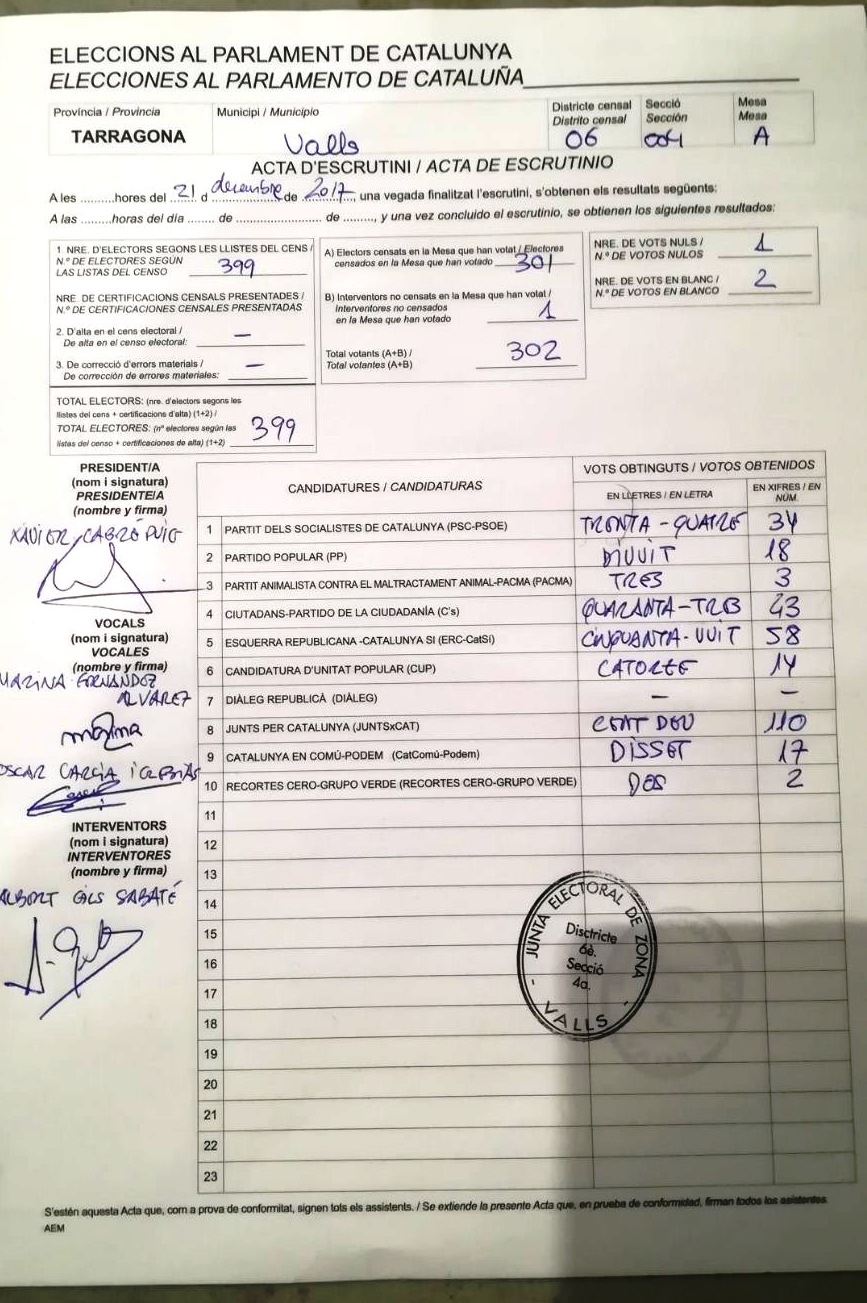 ELECCIONS AL PARLAMENT DE CATALUNYA
ELECCIONES AL PARLAMENTO DE CATALUÑA
Província / Provincia
TARRAGONA
Municipi / Municipio
Valls
Districte censal
Distrito censal
06
Secció
Sección
004
Mesa
Mesa
A
ACTA D'ESCRUTINI / ACTA DE ESCRUTINIO
A les .........hores del 21 d desembre de 2017, una vegada finalitzat l'escrutini, s'obtenen els resultats següents:
A las .........horas del día ....... de ...................... de ........., y una vez concluido el escrutinio, se obtienen los siguientes resultados:
1 NRE. D'ELECTORS SEGONS LES LLISTES DEL CENS /
N.º DE ELECTORES SEGÚN
LAS LISTAS DEL CENSO 399
NRE. DE CERTIFICACIONS CENSALS PRESENTADES /
N.º DE CERTIFICACIONES CENSALES PRESENTADAS
2. D'alta en el cens electoral /
De alta en el censo electoral: —
3. De correcció d'errors materials /
De corrección de errores materiales: —
TOTAL ELECTORS: (nre. d'electors segons les
llistes del cens + certificacions d'alta) (1+2) /
TOTAL ELECTORES: (nº electores según las
listas del censo + certificaciones de alta) (1+2) 399
A) Electors censats en la Mesa que han votat / Electores
censados en la Mesa que han votado 301
B) Interventors no censats en la Mesa que han votat /
Interventores no censados
en la Mesa que han votado 1
Total votants (A+B) /
Total votantes (A+B) 302
NRE. DE VOTS NULS /
N.º DE VOTOS NULOS 1
NRE. DE VOTS EN BLANC /
N.º DE VOTOS EN BLANCO 2
PRESIDENT/A
(nom i signatura)
PRESIDENTE/A
(nombre y firma)
XAVIER CABRÉ PUIG
VOCALS
(nom i signatura)
VOCALES
(nombre y firma)
MARINA FERNANDEZ
ALVAREZ
OSCAR GARCIA IGLESIAS
INTERVENTORS
(nom i signatura)
INTERVENTORES
(nombre y firma)
ALBERT GILS SABATÉ
CANDIDATURES / CANDIDATURAS
VOTS OBTINGUTS / VOTOS OBTENIDOS
EN LLETRES / EN LETRA
EN XIFRES / EN NÚM.
1 PARTIT DELS SOCIALISTES DE CATALUNYA (PSC-PSOE) TRENTA-QUATRE 34
2 PARTIDO POPULAR (PP) DIVUIT 18
3 PARTIT ANIMALISTA CONTRA EL MALTRACTAMENT ANIMAL-PACMA (PACMA) TRES 3
4 CIUTADANS-PARTIDO DE LA CIUDADANÍA (C's) QUARANTA-TRES 43
5 ESQUERRA REPUBLICANA -CATALUNYA SI (ERC-CatSí) CINQUANTA-VUIT 58
6 CANDIDATURA D'UNITAT POPULAR (CUP) CATORZE 14
7 DIÀLEG REPUBLICÀ (DIÀLEG) — —
8 JUNTS PER CATALUNYA (JUNTSxCAT) CENT DEU 110
9 CATALUNYA EN COMÚ-PODEM (CatComú-Podem) DISSET 17
10 RECORTES CERO-GRUPO VERDE (RECORTES CERO-GRUPO VERDE) DOS 2
11
12
13
14
15
16
17
18
19
20
21
22
23
JUNTA ELECTORAL DE ZONA
Disctricte
6è.
Secció
4a.
- VALLS -
S'estén aquesta Acta que, com a prova de conformitat, signen tots els assistents. / Se extiende la presente Acta que, en prueba de conformidad, firman todos los asistentes
AEM